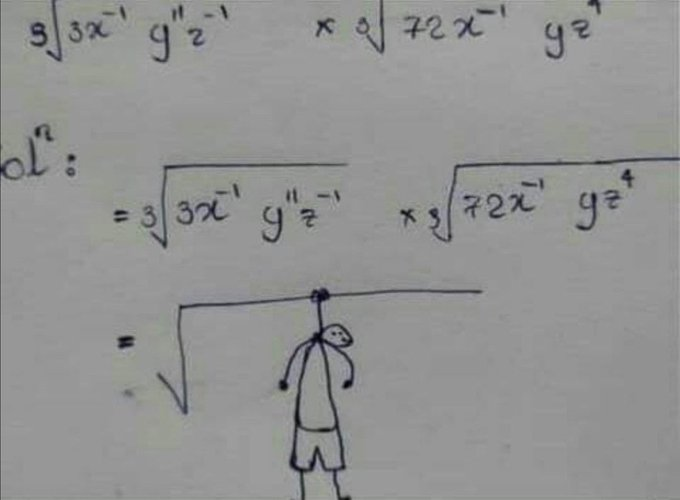 3√3x⁻¹ y¹¹z⁻¹ × 3√72x⁻¹ yz⁴
olⁿ:
= 3√3x⁻¹ y¹¹z⁻¹ × 3√72x⁻¹ yz⁴
= √